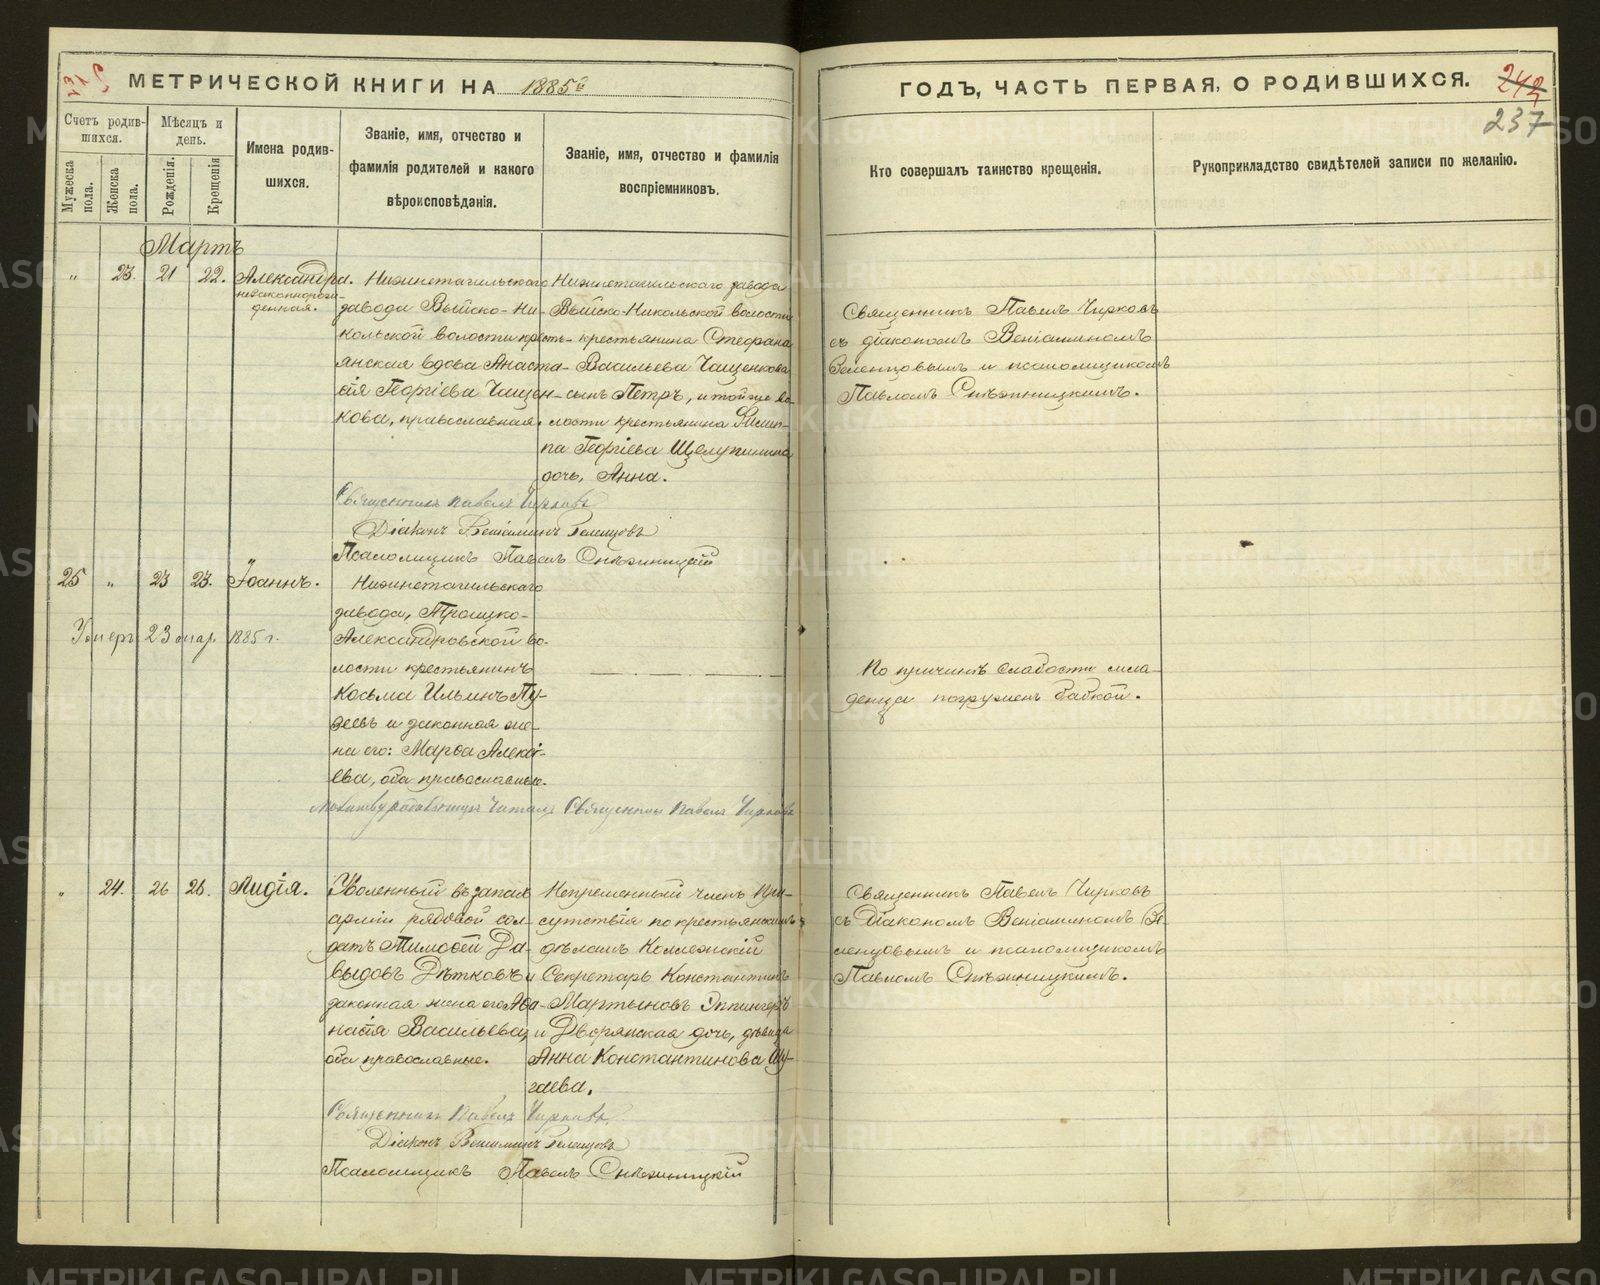 МЕТРИЧЕСКОЙ КНИГИ НА 1885й
ГОДЪ, ЧАСТЬ ПЕРВАЯ, О РОДИВШИХСЯ.
242
237
Счетъ родившихся.
Мѣсяцъ и день.
Имена родившихся.
Званіе, имя, отчество и фамилія родителей и какого вѣроисповѣданія.
Званіе, имя, отчество и фамилія воспріемниковъ.
Кто совершалъ таинство крещенія.
Рукоприкладство свидѣтелей записи по желанію.
Мужеска пола.
Женска пола.
Рожденія.
Крещенія
Мартъ
" 23. 21 22. Александра.
незаконнорож-
денная.
Нижнетагильскаго
завода Выйско-Ни-
кольской волости кресть-
янская вдова Анаста-
сія Георгіева Чащен-
кова, православная.
Нижнетагильскаго завода
Выйско-Никольской волости
крестьянина Стефана
Васильева Чащенкова
сынъ Петръ, и той же во-
лости крестьянина Филип-
па Георгіева Щелупинина
дочь, Анна.
Священникъ Павелъ Чирковъ
съ діакономъ Веніаминомъ
Зеленцовымъ и псаломщикомъ
Павломъ Снѣжницкимъ.
Священникъ Павелъ Чирковъ
Діаконъ Веніаминъ Зеленцовъ
Псаломщикъ Павелъ Снѣжницкій
25 " 23 23. Іоаннъ.
Умеръ 23 мар. 1885 г.
Нижнетагильскаго
завода, Троицко-
Александровской во-
лости крестьянинъ
Косьма Ильинъ Пу-
зеевъ и законная же-
на его: Марѳа Алексі-
ева, оба православные.
По причинѣ слабости мла-
денца погруженъ бабкой.
Молитву читалъ Священникъ Павелъ Чирковъ
" 24. 26 26. Лидія.
Уволенный въ запасъ
арміи рядовой сол-
датъ Тимоѳей Да-
выдовъ Дѣтковъ и
законная жена его Ана-
настія Васильева,
оба православные.
Непременный членъ При-
сутствія по крестьянскимъ
дѣламъ Коллежскій
Секретарь Константинъ
Мартыновъ Эппингеръ
и Дворянская дочь, дѣвица
Анна Константинова Шу-
гаева.
Священникъ Павелъ Чирковъ
съ Діакономъ Веніаминомъ Зе-
ленцовымъ и псаломщикомъ
Павломъ Снѣжницкимъ.
Священникъ Павелъ Чирковъ
Діаконъ Веніаминъ Зеленцовъ
Псаломщикъ Павелъ Снѣжницкій
METRIKI.GASO-URAL.RU